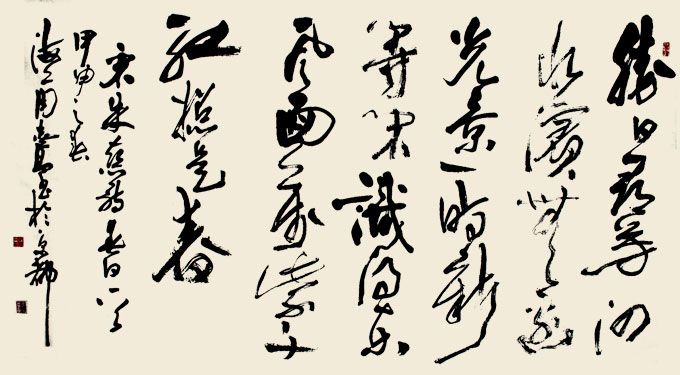 勝日尋芳泗
水濱無邊
光景一時新
等閑識得東
風面萬紫千
紅總是春
宋朱熹詩春日一首
甲申之春
海上周志高書於京都